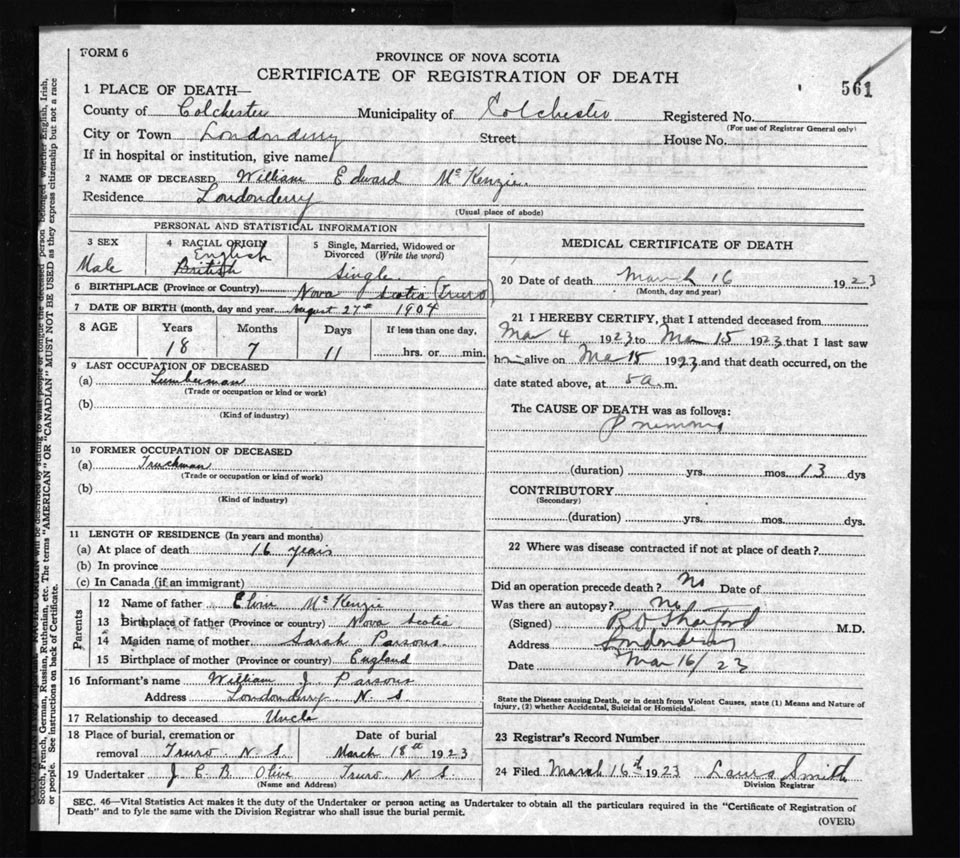 FORM 6
PROVINCE OF NOVA SCOTIA
CERTIFICATE OF REGISTRATION OF DEATH
561
1 PLACE OF DEATH—
County of Colchester Municipality of Colchester Registered No.
(For use of Registrar General only)
City or Town Londonderry Street House No.
If in hospital or institution, give name
2 NAME OF DECEASED William Edward McKenzie.
Residence Londonderry
(Usual place of abode)
PERSONAL AND STATISTICAL INFORMATION
3 SEX
Male
4 RACIAL ORIGIN
English
British
5 Single, Married, Widowed or
Divorced (Write the word)
Single.
6 BIRTHPLACE (Province or Country) Nova Scotia (Truro)
7 DATE OF BIRTH (month, day and year) August 27th 1904
8 AGE Years Months Days If less than one day,
18 7 11 hrs. or min.
9 LAST OCCUPATION OF DECEASED
(a) Lumberman
(Trade or occupation or kind or work)
(b)
(Kind of industry)
10 FORMER OCCUPATION OF DECEASED
(a) Truckman
(Trade or occupation or kind of work)
(b)
(Kind of industry)
11 LENGTH OF RESIDENCE (In years and months)
(a) At place of death 16 years
(b) In province
(c) In Canada (if an immigrant)
Parents
12 Name of father McKenzie
13 Birthplace of father (Province or country) Nova Scotia
14 Maiden name of mother Sarah Parsons.
15 Birthplace of mother (Province or country) England
16 Informant's name William J. Parsons
Address Londonderry N. S
17 Relationship to deceased Uncle
18 Place of burial, cremation or
removal Truro. N. S.
Date of burial
March 18th 1923
19 Undertaker J. E. B. Olive Truro N. S.
(Name and Address)
MEDICAL CERTIFICATE OF DEATH
20 Date of death March 16 1923
(Month, day and year)
21 I HEREBY CERTIFY, that I attended deceased from
Mar 4 1923 to Mar 15 1923 that I last saw
him alive on Mar 15 1923 and that death occurred, on the
date stated above, at 5 a. m.
The CAUSE OF DEATH was as follows:
(duration) yrs. mos. 13 dys
CONTRIBUTORY
(Secondary)
(duration) yrs. mos. dys.
22 Where was disease contracted if not at place of death?
Did an operation precede death? No Date of
Was there an autopsy? No
(Signed) M.D.
Address Londonderry
Date Mar 16/23
State the Disease causing Death, or in death from Violent Causes, state (1) Means and Nature of
Injury, (2) whether Accidental, Suicidal or Homicidal.
23 Registrar's Record Number
24 Filed March 16th 1923 Laura Smith
Division Registrar
SEC. 46—Vital Statistics Act makes it the duty of the Undertaker or person acting as Undertaker to obtain all the particulars required in the "Certificate of Registration of
Death" and to fyle the same with the Division Registrar who shall issue the burial permit.
(OVER)
Scotch, French, German, Russian, Ruthenian, etc. The terms "AMERICAN" OR "CANADIAN" MUST NOT BE USED as they express citizenship but not a race
or people. See instructions on back of Certificate.